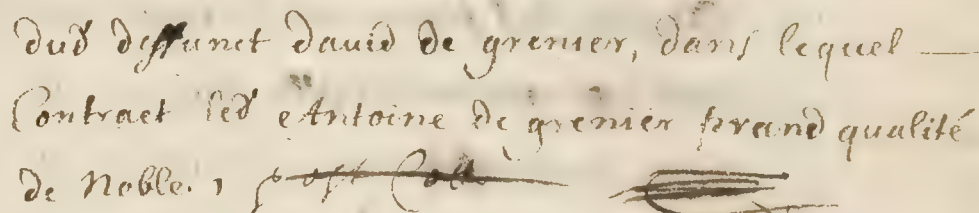 dud deffunct dauid de grenier, dans lequel
Contract led Antoine de grenier prand qualité
de Noble.